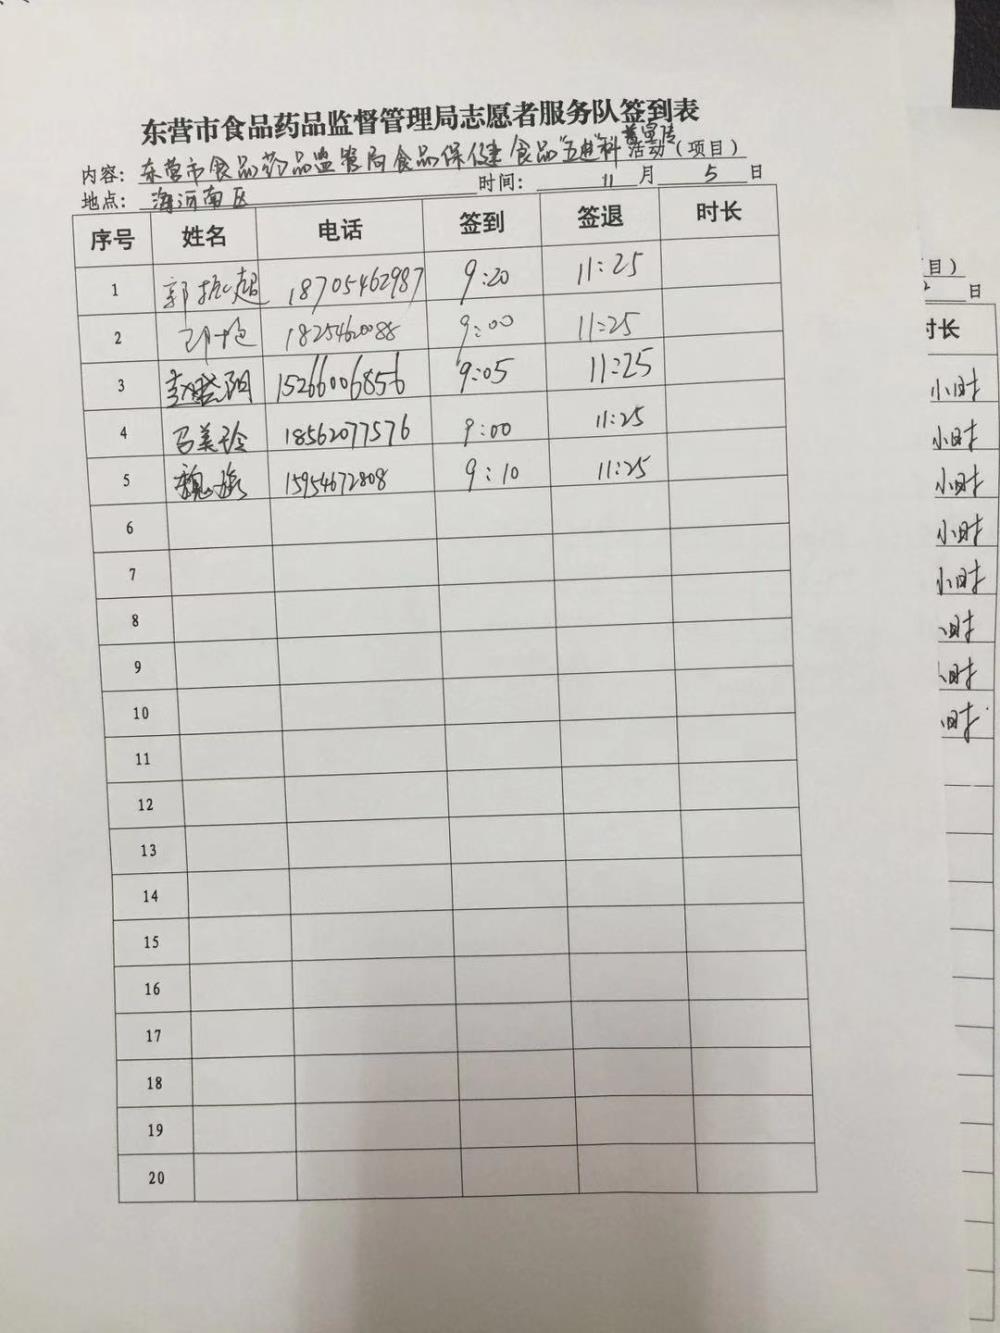 东营市食品药品监督管理局志愿者服务队签到表
内容：东营市食品药品监管局食品保健食品"五进"科普宣传活动（项目）
地点：海河南区 时间：11月5日
序号 姓名 电话 签到 签退 时长
1 郭振超 18705462987 9:20 11:25
2 1825460088 9:00 11:25
3 赵晓阳 15266006856 9:05 11:25
4 吕美玲 18562077576 9:00 11:25
5 魏 15954672808 9:10 11:25
6
7
8
9
10
11
12
13
14
15
16
17
18
19
20
目）
日
时长
小时
小时
小时
小时
小时
时
时
时